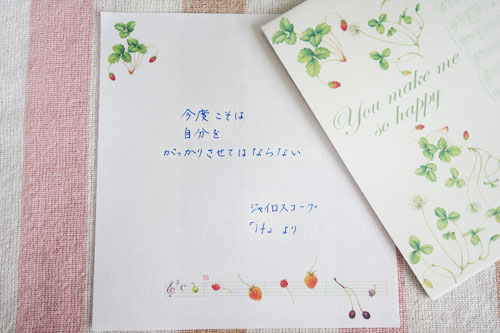 今度こそは
自分を
がっかりさせてはならない
ジャイロスコープ
「if」より
You make me
so happy